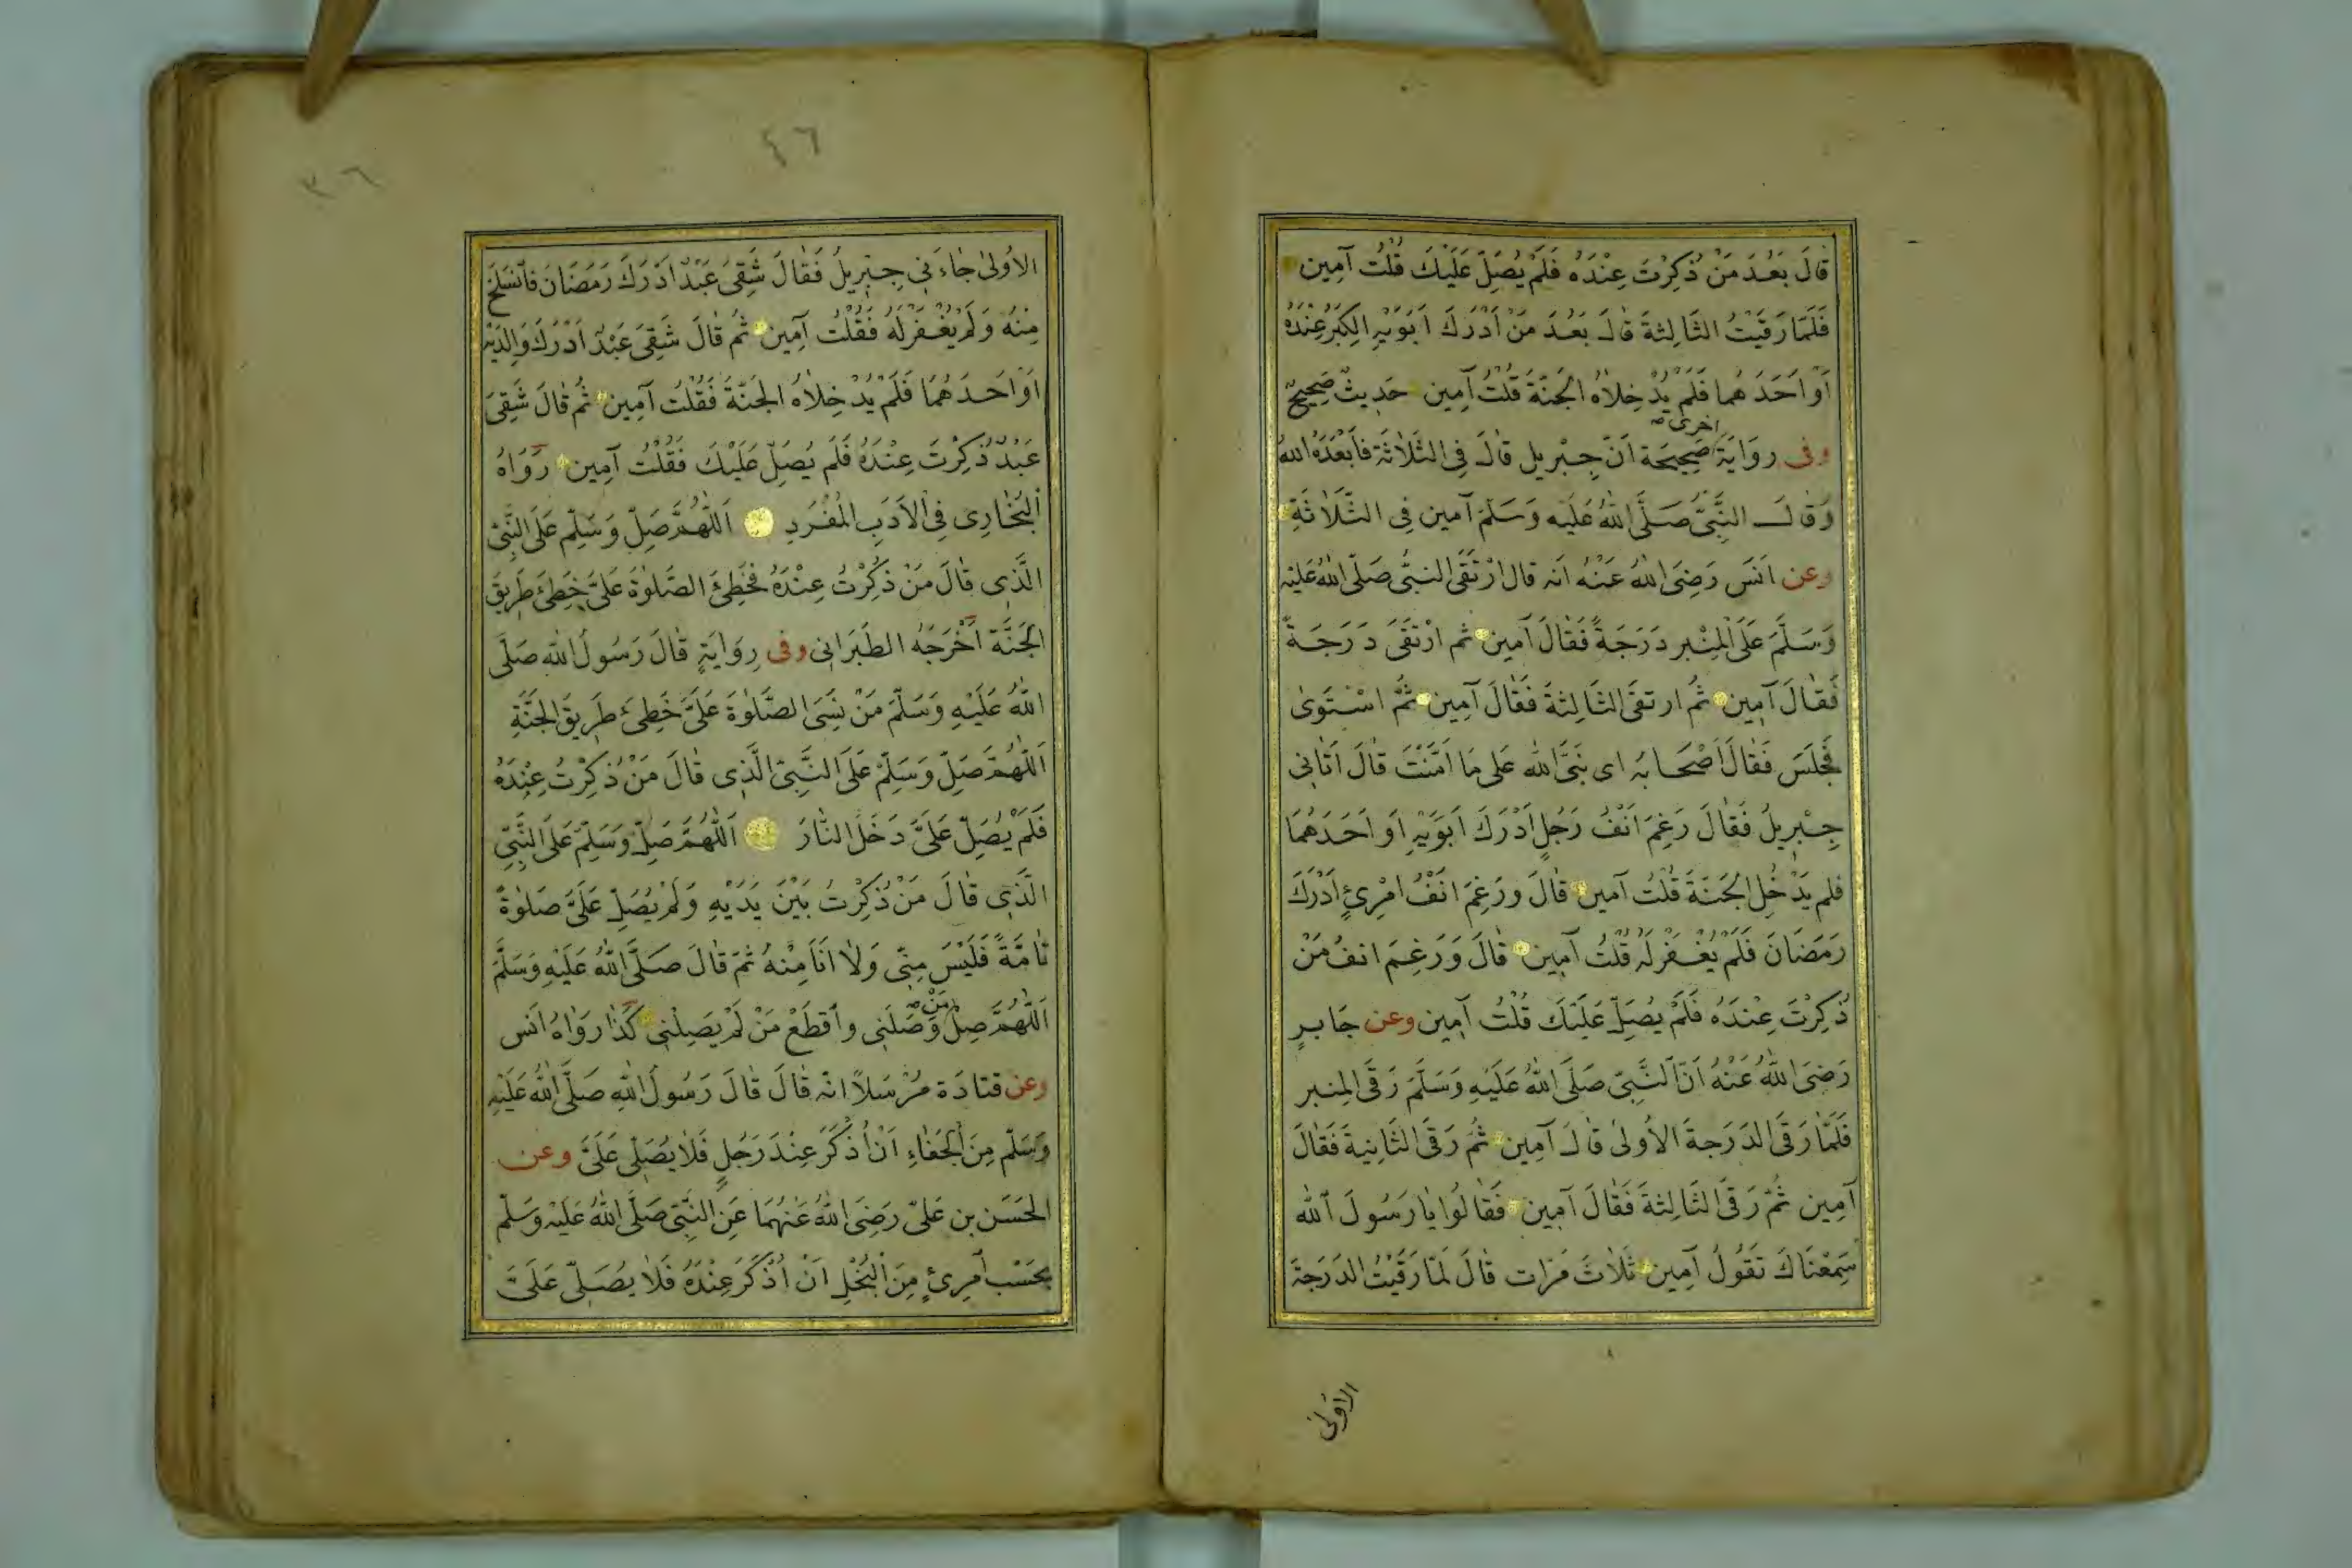 قَالَ بَعُدَ مَنْ ذُكِرْتَ عِنْدَهُ فَلَمْ يُصَلِّ عَلَيْكَ قُلْتُ آمِين
فَلَمَّا رَقَيْتُ الثَّالِثَةَ قَالَ بَعُدَ مَنْ أَدْرَكَ اَبَوَيْهِ الكِبَرُ عِنْدَهُ
اَوْ اَحَدَهُمَا فَلَمْ يُدْخِلَاهُ الجَنَّةَ قُلْتُ آمِين حَدِيثٌ صَحِيحٌ
وفى رِوَايَةٍ اخرى صَحِيحَة اَنَّ جِبْرِيل قَالَ فِى الثَّلَاثَة فَاَبْعَدَهُ اللهُ
وَقَالَ النَّبِىُّ صَلَّى اللهُ عَلَيْهِ وَسَلَّمَ آمين فِى الثَّلَاثَةِ
وعن اَنَس رَضِىَ اللهُ عَنْهُ اَنه قال ارْتَقَى النبىُّ صَلَّى اللهُ عَلَيْهِ
وَسَلَّمَ عَلَى المِنْبر دَرَجَةً فَقَالَ آمِين ثم ارْتَقَى دَرَجَةً
فَقَالَ آمِين ثُمَّ ارتقَى الثَالِثَةَ فَقَالَ آمِين ثُمَّ اسْتَوىٰ
فَجَلَسَ فَقَالَ اَصْحَابُهُ اى نَبِىَّ الله عَلى مَا اَمَّنْتَ قَالَ اَتَانِى
جِبْرِيلُ فَقَالَ رَغِمَ اَنْفُ رَجُلٍ اَدْرَكَ اَبَوَيْهِ اَو اَحَدَهُمَا
فلم يَدْخُلِ الجَنَّةَ قُلْتُ آمين قَالَ ورَغِمَ اَنْفُ امْرِئٍ اَدْرَكَ
رَمَضَانَ فَلَمْ يُغْفَرْلَهُ قُلْتُ آمِين قَالَ وَرَغِمَ انفُ مَنْ
ذُكِرْتَ عِنْدَهُ فَلَمْ يُصَلِّ عَلَيْكَ قُلْتُ آمِين وعن جَابِرٍ
رَضِىَ اللهُ عَنْهُ اَنَّ النَّبِىَّ صَلَّى اللهُ عَلَيْهِ وَسَلَّمَ رَقَى المِنبر
فَلَمَّا رَقَى الدَرَجَةَ الاُولىٰ قَالَ آمِين ثُمَّ رَقَى الثَانِيةَ فَقَالَ
آمِين ثُمَّ رَقَى الثَالِثةَ فَقَالَ آمِين فَقَالُوا يَا رَسُولَ اللهِ
سَمِعْنَاكَ تَقُولُ آمِين ثَلَاثَ مَرَّات قَالَ لَمَّا رَقَيْتُ الدَرَجَةَ
الاولى
٤٦
٣٦
الاُولىٰ جَاءَنِى جِبْرِيلُ فَقَالَ شَقِىَ عَبْدٌ اَدْرَكَ رَمَضَانَ فَانْسَلَخَ
مِنْهُ وَلَمْ يُغْفَرْلَهُ فَقُلْتُ آمِين ثُمَّ قَالَ شَقِىَ عَبْدٌ اَدْرَكَ وَالِدَيْهِ
اَوْ اَحَدَهُمَا فَلَمْ يُدْخِلَاهُ الجَنَّةَ فَقُلْتُ آمِين ثُمَّ قَالَ شَقِىَ
عَبْدٌ ذُكِرْتَ عِنْدَهُ فَلَم يُصَلِّ عَلَيْكَ فَقُلْتُ آمِين رَوَاهُ
البُخَارِى فِى الاَدَبِ المُفْرَدِ اَللّٰهُمَّ صَلِّ وَسَلِّم عَلَى النَّبِىّ
الَّذِى قَالَ مَنْ ذُكِرْتُ عِنْدَهُ فَخَطِئَ الصَّلٰوةَ عَلَىَّ خَطِئَ طَرِيقَ
الجَنَّة اَخْرَجَهُ الطَبَرَانى وفى رِوَايَةٍ قَالَ رَسُولُ الله صَلَّى
اللهُ عَلَيْهِ وَسَلَّمَ مَنْ نَسِىَ الصَّلٰوةَ عَلَىَّ خَطِئَ طَرِيقَ الجَنَّةِ
اَللّٰهُمَّ صَلِّ وَسَلِّمْ عَلَى النَّبِىّ الَّذِى قَالَ مَنْ ذُكِرْتُ عِنْدَهُ
فَلَمْ يُصَلِّ عَلَىَّ دَخَلَ النَّارَ اَللّٰهُمَّ صَلِّ وَسَلِّمْ عَلَى النَّبِىّ
الَّذِى قَالَ مَنْ ذُكِرْتُ بَيْنَ يَدَيْهِ وَلَمْ يُصَلِّ عَلَىَّ صَلٰوةً
تَامَّةً فَلَيْسَ مِنِّى وَلَا اَنَا مِنْهُ ثمَّ قَالَ صَلَّى اللهُ عَلَيْهِ وَسَلَّمَ
اَللّٰهُمَّ صِلْ مَنْ وَصَلَنِى وَاقْطَعْ مَنْ لَمْ يَصِلْنِى كَذَا رَوَاهُ اَنَس
وعن قتادَة مُرْسَلًا انه قَالَ قَالَ رَسُولُ اللهِ صَلَّى اللهُ عَلَيْهِ
وَسَلَّم مِنَ الجَفَاءِ اَنْ اُذْكَرَ عِنْدَ رَجُلٍ فَلَا يُصَلِّى عَلَىَّ وعن
الحَسَن بن عَلىّ رَضِىَ اللهُ عَنْهُمَا عَنِ النَّبِىّ صَلَّى اللهُ عَلَيْهِ وَسَلَّم
بِحَسْبِ امرِئٍ مِنَ الْبُخْلِ اَنْ اُذْكَرَ عِنْدَهُ فَلَا يُصَلِّى عَلَىَّ